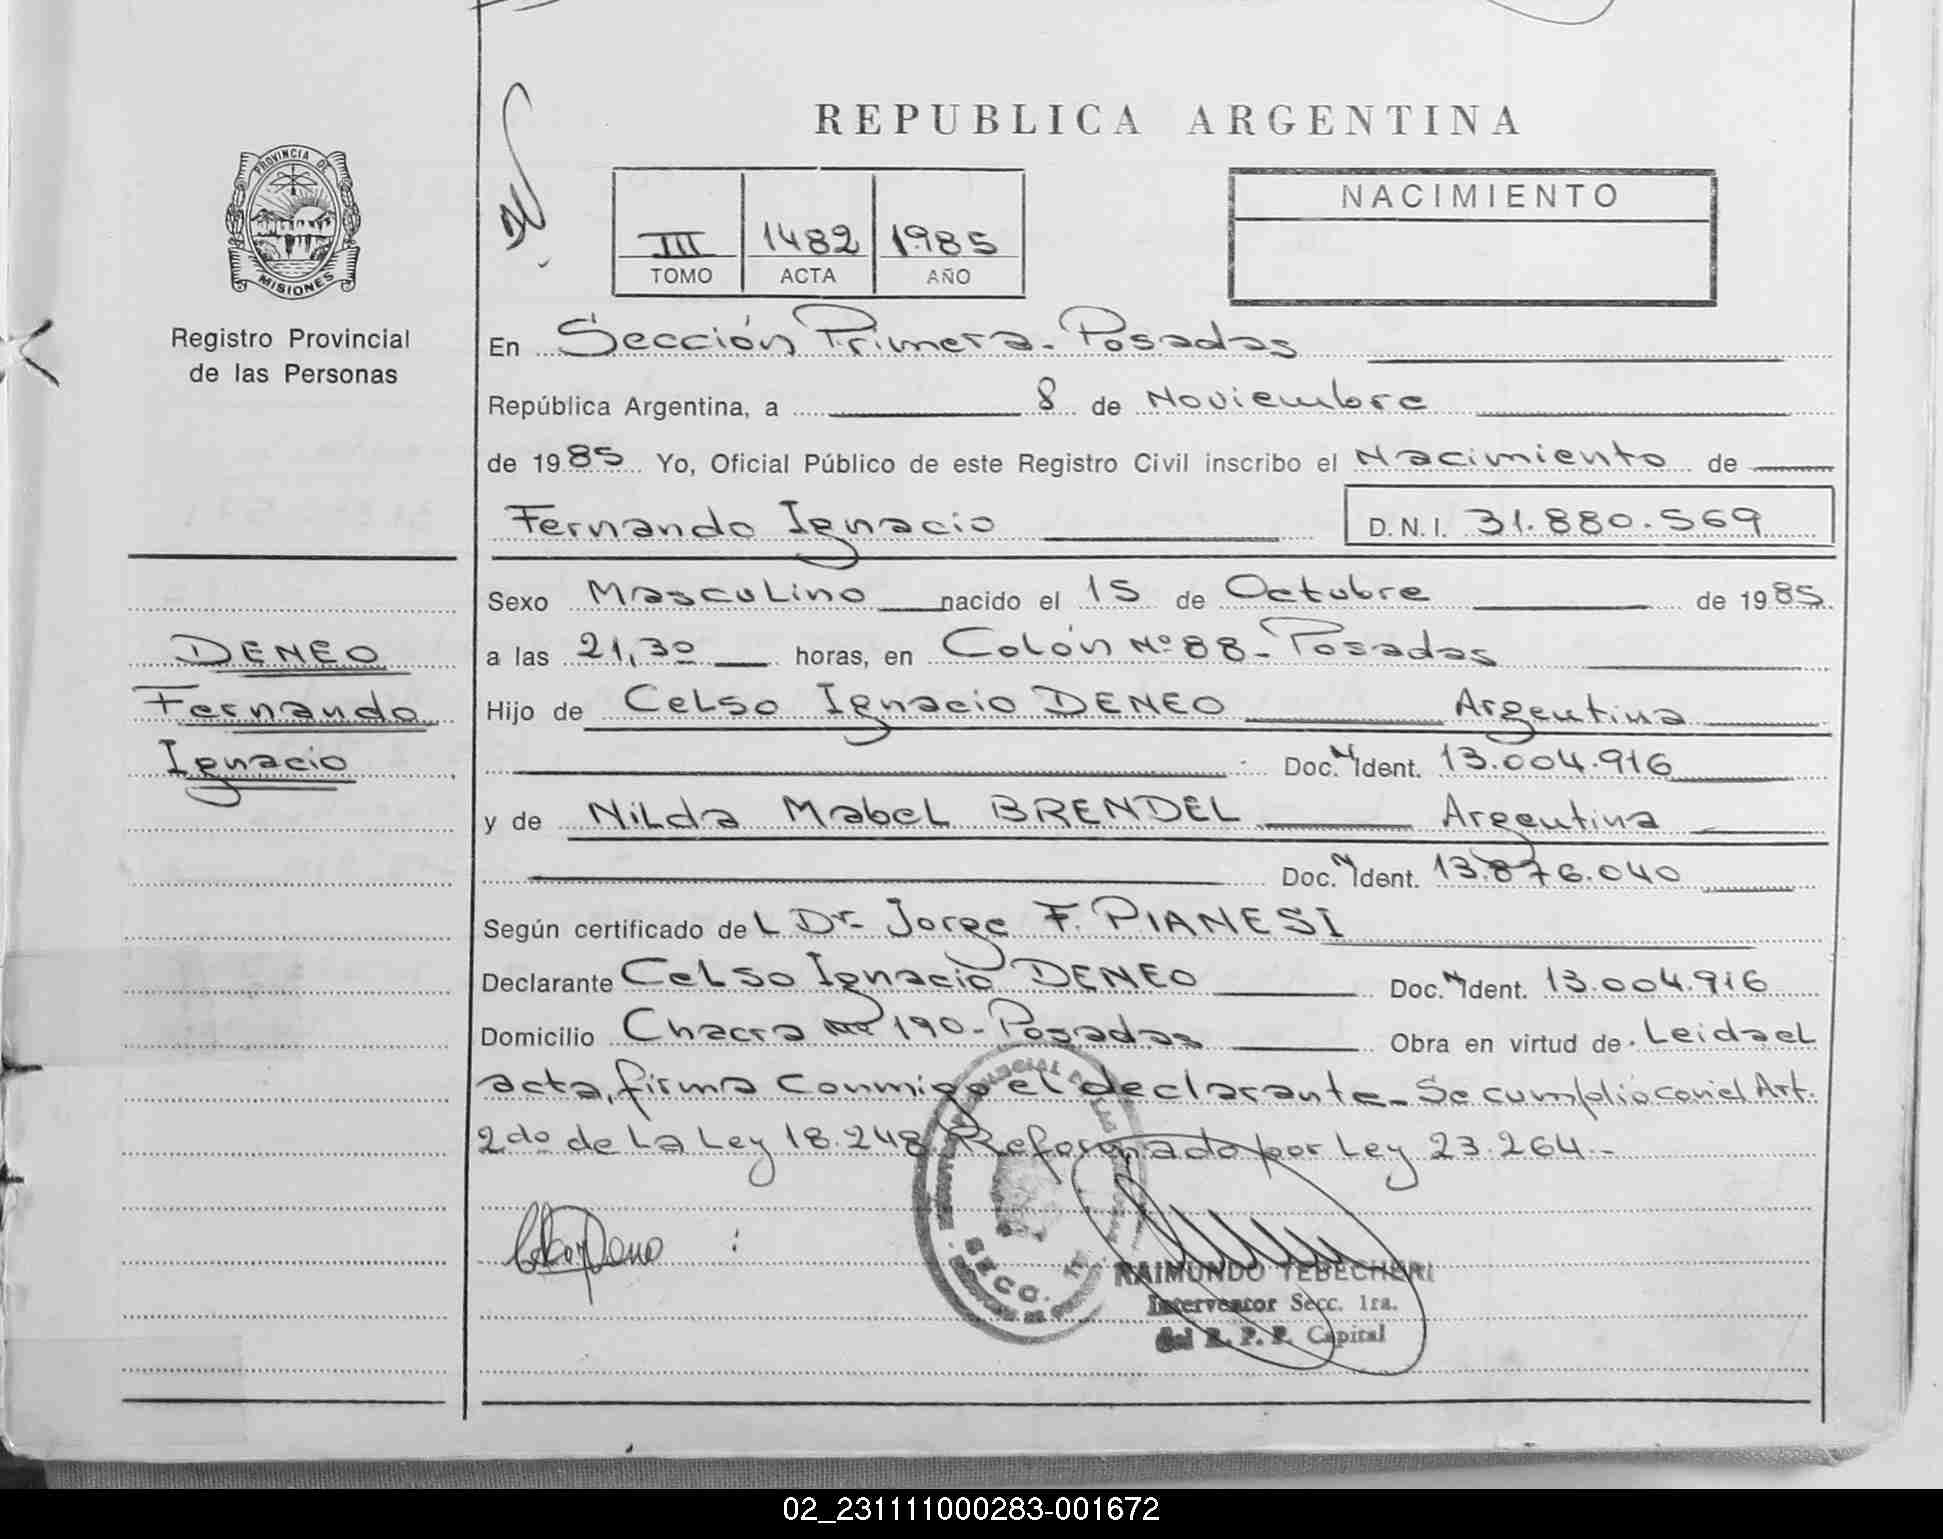 REPUBLICA ARGENTINA
PROVINCIA DE MISIONES
Registro Provincial
de las Personas
III 1482 1985
TOMO ACTA AÑO
NACIMIENTO
En Sección Primera - Posadas
República Argentina, a 8 de Noviembre
de 1985 Yo, Oficial Público de este Registro Civil inscribo el Nacimiento de
Fernando Ignacio D.N.I. 31.880.569
Sexo Masculino nacido el 15 de Octubre de 1985
DENEO
Fernando
Ignacio
a las 21,30 horas, en Colón Nº 88 - Posadas
Hijo de Celso Ignacio DENEO Argentina
Doc. N Ident. 13.004.916
y de Nilda Mabel BRENDEL Argentina
Doc. N Ident. 13.876.040
Según certificado del Dr. Jorge F. PIANESI
Declarante Celso Ignacio DENEO Doc. N Ident. 13.004.916
Domicilio Chacra 190 - Posadas Obra en virtud de Leida el
acta, firma conmigo el declarante - Se cumplió con el Art.
2do de la Ley 18.248 Reformado por Ley 23.264.-
RAIMUNDO TEBECHERI
Interventor Secc. 1ra.
del R. P. P. Capital
02_231111000283-001672